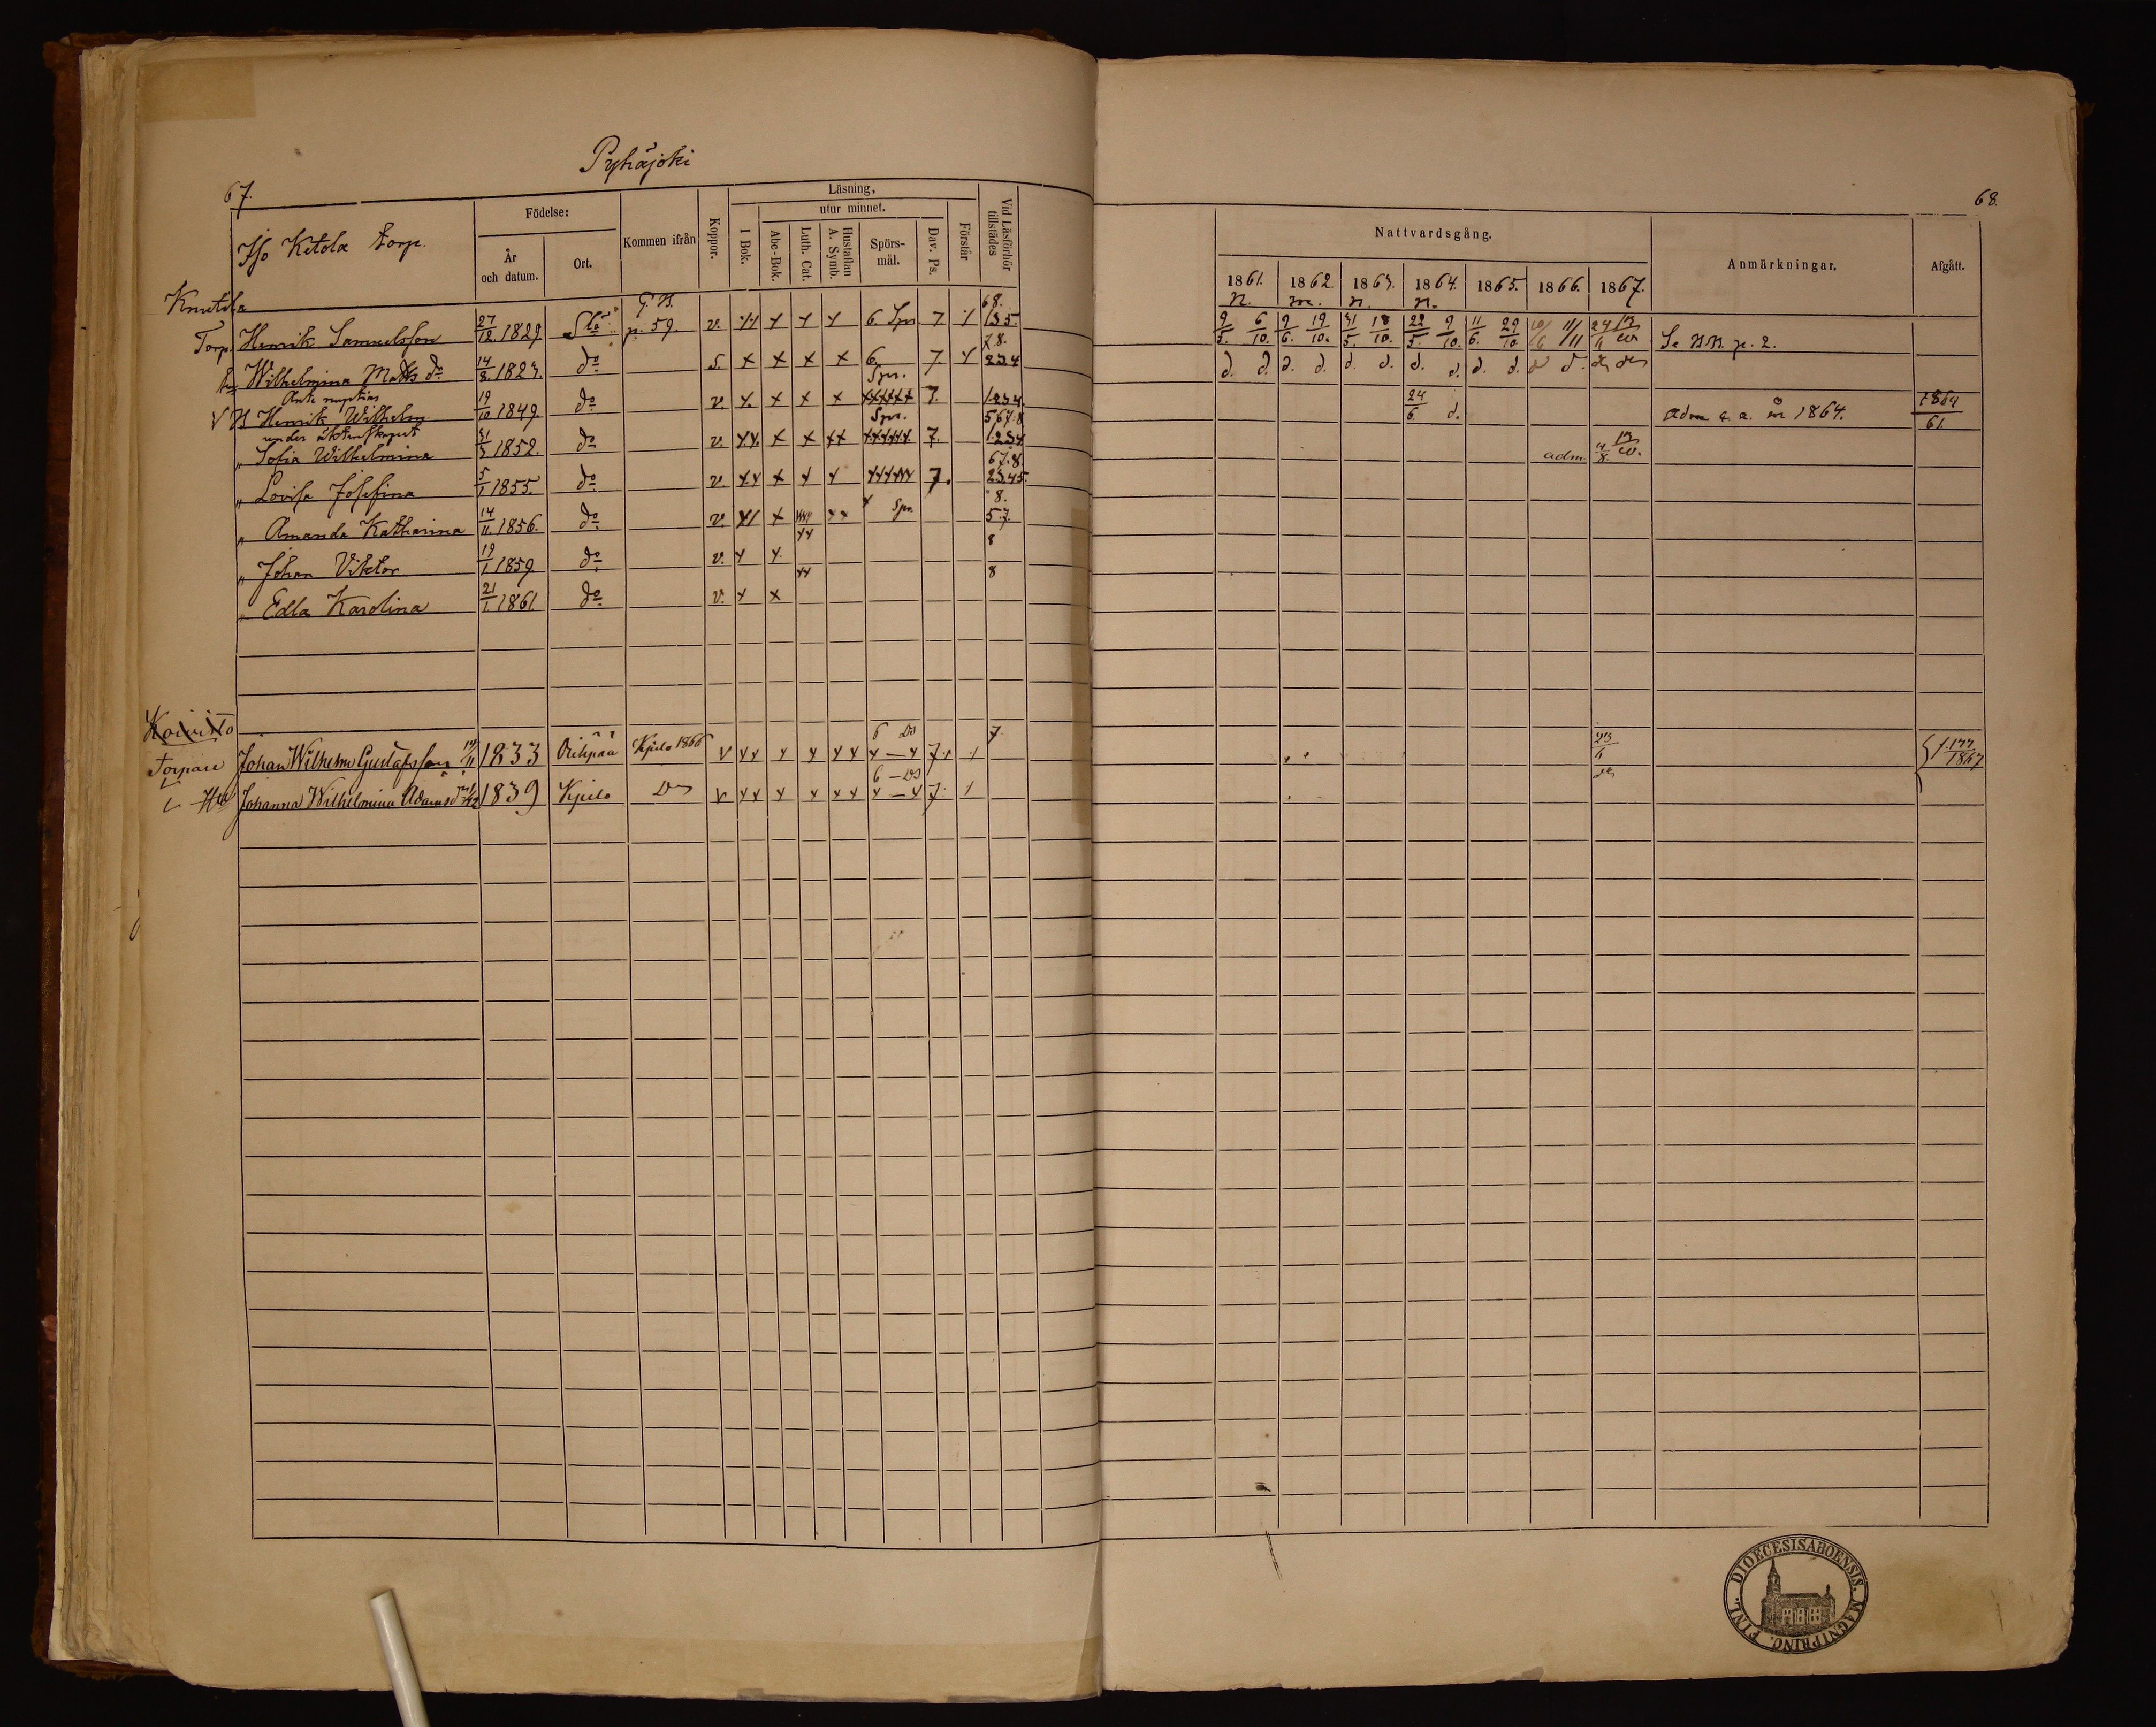 Pyhäjoki
67.
68.
Iso Ketola torp.
Födelse:
År och datum.
Ort.
Kommen ifrån
Koppor.
Läsning,
utur minnet.
I Bok.
Abc-Bok.
Luth. Cat.
Hustaflan A. Symb.
Spörs-mål.
Dav. Ps.
Förstår
Vid Läsförhör tillstädes
Nattvardsgång.
1861. 1862. 1863. 1864. 1865. 1866. 1867.
n. m. n. n.
Anmärkningar.
Afgått.
Knutila
G. B. 68.
Torp. Henrik Samuelsson 27/12 1829. p. 59. v. 6. Spr. 7. 135. 9/5. 6/10. 9/6. 19/10. 31/5. 18/10. 22/5. 9/10. 11/6. 29/10. Se N.B. p. 2.
78.
Wilhelmina Matts dr 14/8. 1823. do S. x x x x 6. Spr. 7. 234 d. d. d. d. d. d. d. d. d. d.
Ante nuptias
V H Henrik Wilhelm 19/10 1849. do v. x. x x x xxxxxx 7. 1234. 24/6 d. Adm. s. a. år 1864. 1864/61
under äktenskapet Spr. 567.8
" Sofia Wilhelmina 31/3 1852. do v. xx. x x xx xxxxxx 7. 1234 adm.
67.8
" Lovisa Josefina 5/1 1855. do v. xx x x x xxxxxx 7. 2345.
8.
" Amanda Katharina 14/11. 1856. do v. x xx Spr. 5.7.
8
" Johan Viktor 19/1. 1859 do v. x x.
8
" Edla Karolina 21/1 1861. do v. x x
Koivisto
6 Do 7.
Torpare Johan Wilhelm Gustafsson 1833 Kjulo 1866 v xx x x xx x—x 7. 23/6 1867
6 — Do
Johanna Wilhelmina Adamsdr 1839 Kjulo Do v xx x x xx x—x 7.
DIOECESIS ABOENSIS. MAGNI PRINC. FINL.